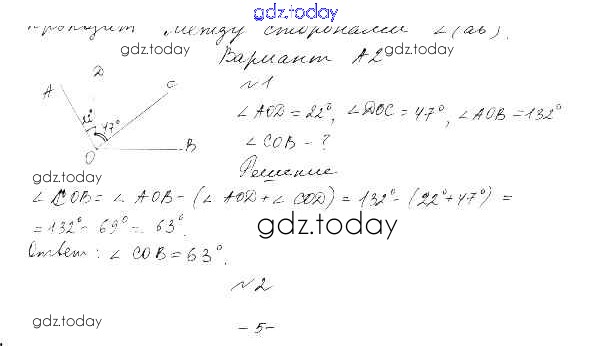 gdz.today
проходит между сторонами ∠(ab).
gdz.today gdz.today
Вариант А2
№1
A D C 22° 47° O B
∠AOD = 22°, ∠DOC = 47°, ∠AOB = 132°
∠COB - ?
gdz.today
Решение
∠COB = ∠AOB - (∠AOD + ∠COD) = 132° - (22° + 47°) =
= 132° - 69° = 63°.
gdz.today
Ответ: ∠COB = 63°.
№2
gdz.today
- 5 -